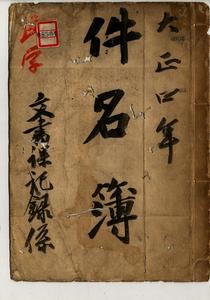 大正四年
件名簿
文書課記録係